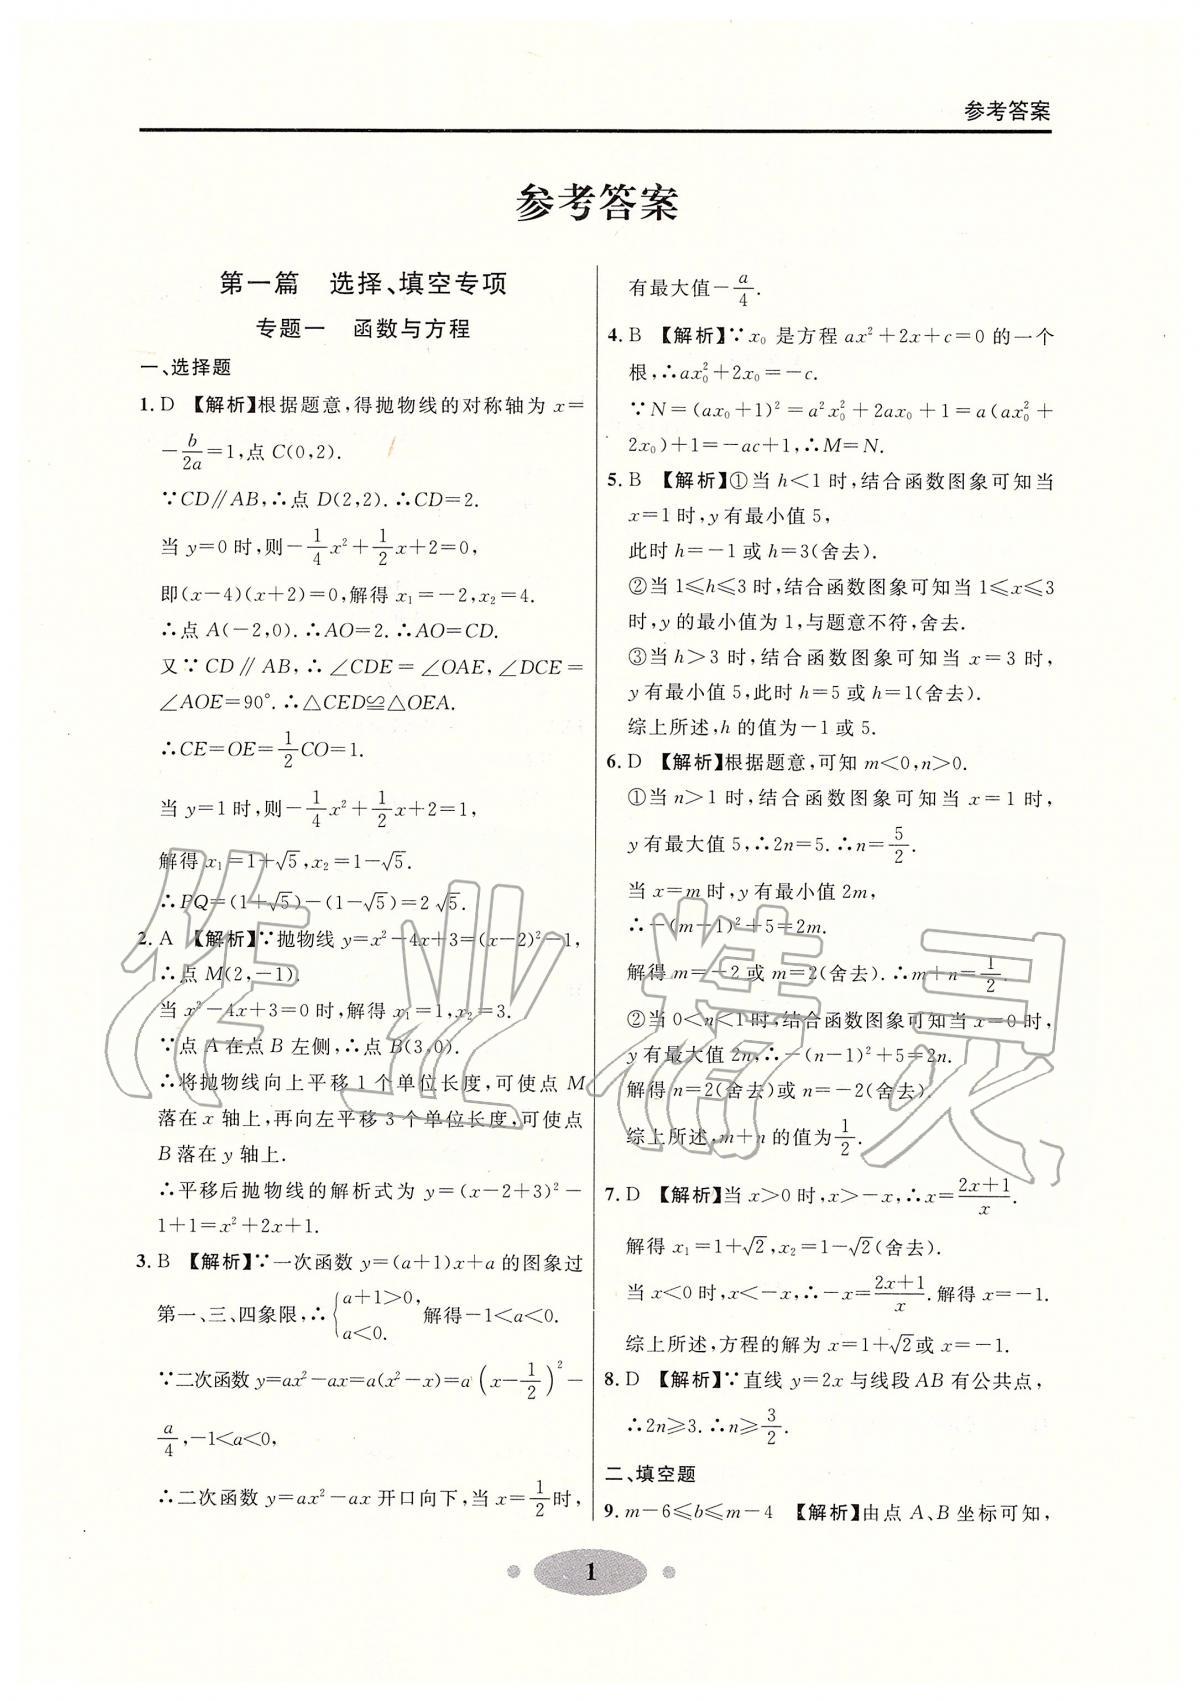 参考答案
参考答案
第一篇　选择、填空专项
专题一　函数与方程
一、选择题
1. D 【解析】根据题意,得抛物线的对称轴为 x=
-b/2a=1,点 C(0,2).
∵CD∥AB,∴点 D(2,2).∴CD=2.
当 y=0 时,则-1/4x²+1/2x+2=0,
即(x-4)(x+2)=0,解得 x₁=-2,x₂=4.
∴点 A(-2,0).∴AO=2.∴AO=CD.
又∵CD∥AB,∴∠CDE=∠OAE,∠DCE=
∠AOE=90°.∴△CED≌△OEA.
∴CE=OE=1/2CO=1.
当 y=1 时,则-1/4x²+1/2x+2=1,
解得 x₁=1+√5,x₂=1-√5.
∴PQ=(1+√5)-(1-√5)=2√5.
2. A 【解析】∵抛物线 y=x²-4x+3=(x-2)²-1,
∴点 M(2,-1).
当 x²-4x+3=0 时,解得 x₁=1,x₂=3.
∵点 A 在点 B 左侧,∴点 B(3,0).
∴将抛物线向上平移 1 个单位长度,可使点 M
落在 x 轴上,再向左平移 3 个单位长度,可使点
B 落在 y 轴上.
∴平移后抛物线的解析式为 y=(x-2+3)²-
1+1=x²+2x+1.
3. B 【解析】∵一次函数 y=(a+1)x+a 的图象过
第一、三、四象限,∴{a+1>0, a<0. 解得-1<a<0.
∵二次函数 y=ax²-ax=a(x²-x)=a(x-1/2)²-
a/4,-1<a<0,
∴二次函数 y=ax²-ax 开口向下,当 x=1/2时,
有最大值-a/4.
4. B 【解析】∵x₀ 是方程 ax²+2x+c=0 的一个
根,∴ax₀²+2x₀=-c.
∵N=(ax₀+1)²=a²x₀²+2ax₀+1=a(ax₀²+
2x₀)+1=-ac+1,∴M=N.
5. B 【解析】①当 h<1 时,结合函数图象可知当
x=1 时,y 有最小值 5,
此时 h=-1 或 h=3(舍去).
②当 1≤h≤3 时,结合函数图象可知当 1≤x≤3
时,y 的最小值为 1,与题意不符,舍去.
③当 h>3 时,结合函数图象可知当 x=3 时,
y 有最小值 5,此时 h=5 或 h=1(舍去).
综上所述,h 的值为-1 或 5.
6. D 【解析】根据题意,可知 m<0,n>0.
①当 n>1 时,结合函数图象可知当 x=1 时,
y 有最大值 5,∴2n=5.∴n=5/2.
当 x=m 时,y 有最小值 2m,
∴-(m-1)²+5=2m.
解得 m=-2 或 m=2(舍去).∴m+n=1/2.
②当 0<n<1 时,结合函数图象可知当 x=0 时,
y 有最大值 2n,∴-(n-1)²+5=2n.
解得 n=2(舍去)或 n=-2(舍去).
综上所述,m+n 的值为1/2.
7. D 【解析】当 x>0 时,x>-x,∴x=(2x+1)/x.
解得 x₁=1+√2,x₂=1-√2(舍去).
当 x<0 时,x<-x,∴-x=(2x+1)/x.解得 x=-1.
综上所述,方程的解为 x=1+√2或 x=-1.
8. D 【解析】∵直线 y=2x 与线段 AB 有公共点,
∴2n≥3.∴n≥3/2.
二、填空题
9. m-6≤b≤m-4 【解析】由点 A、B 坐标可知,
1
作业精灵